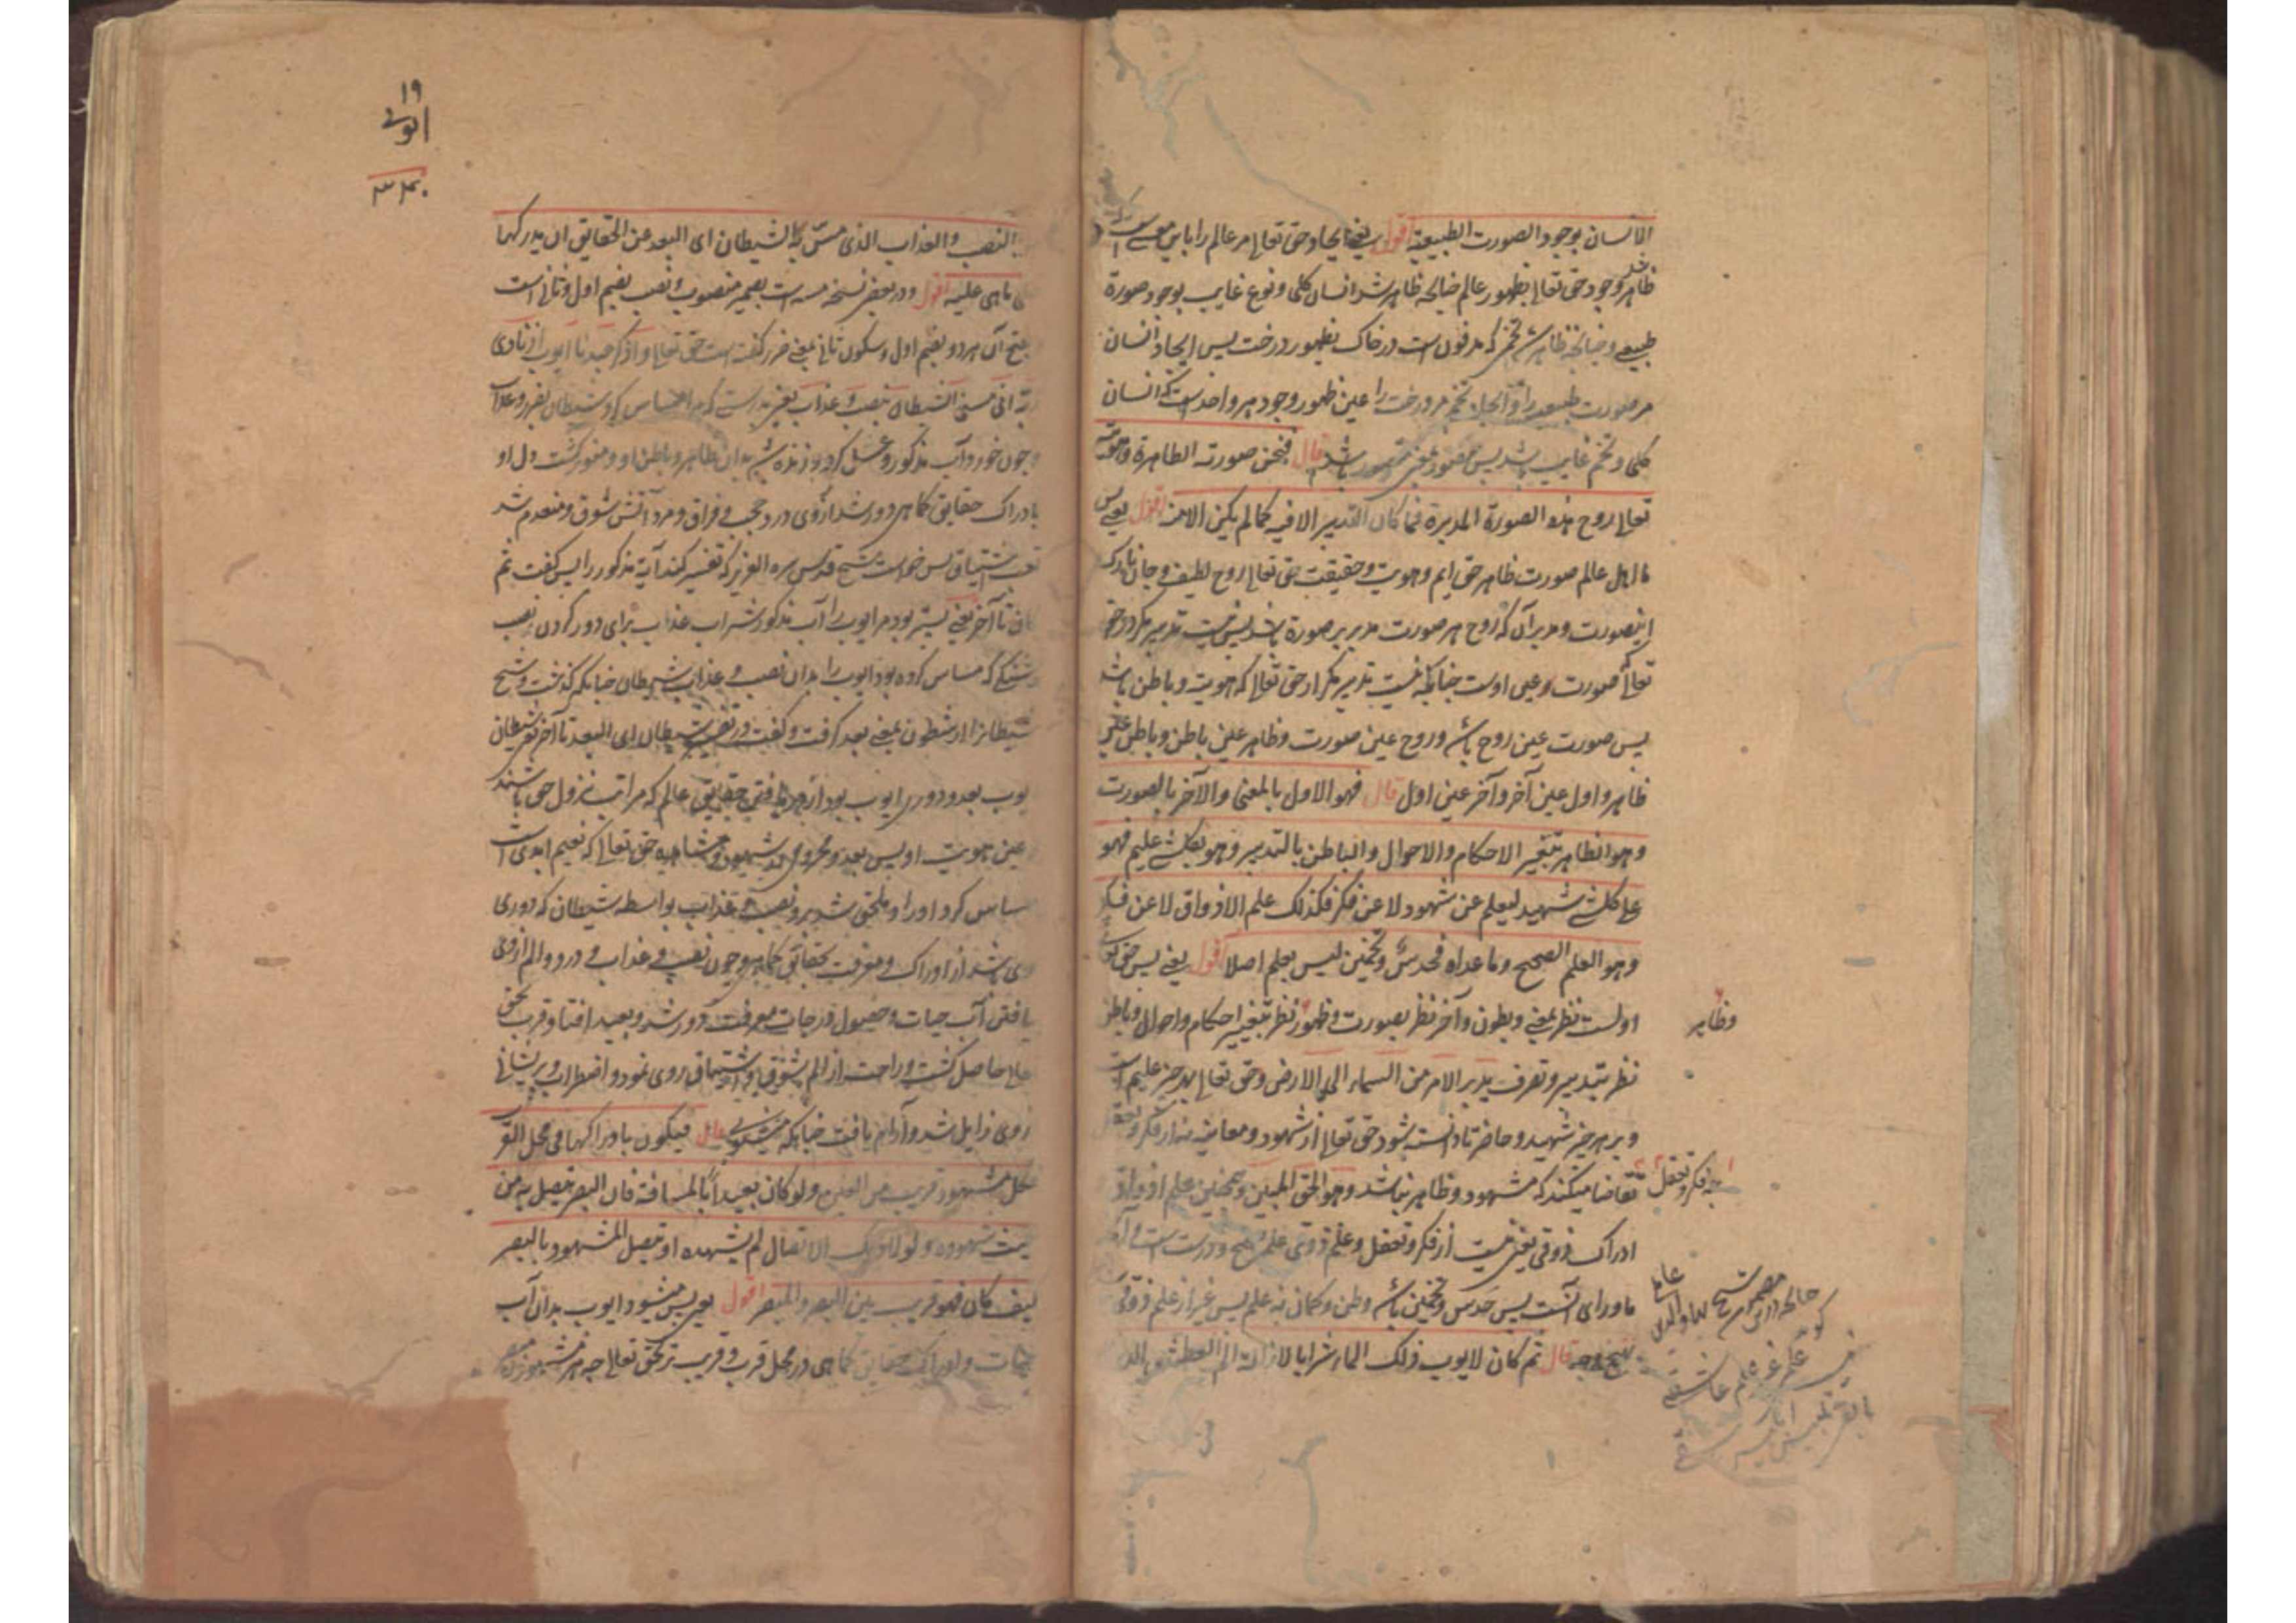 الانسان بوجود الصورت الطبیعیة اقول یعنی ایجاد حق تعالی مر عالم را باین معنی است
ظاهر شد وجود حق تعالی بظهور عالم چنانچه ظاهر شد انسان کلی و نوع غایب بوجود صورة
طبیعی و چنانچه ظاهر شد تخم که مدفون است در خاک بظهور درخت پس ایجاد انسان
مر صورت طبیعیه را و ایجاد تخم مر درخت را عین ظهور وجود هر واحد است که انسان
کلی و تخم غایب باشد پس مقصود عین باشد قال فنحن صورته الظاهرة وهویته
تعالی روح هذه الصورة المدبرة فما کان التدبیر الا فیه کما لم یکن الا منه اقول یعنی پس
ما اهل عالم صورت ظاهر حق ایم و هویت و حقیقت حق تعالی روح لطیف و جان نازک
اینصورت و مدبر آن که روح هر صورت مدبر هر صورة باشد پس نیست تدبیر مگر در حق
تعالی که صورت و عین اوست چنانکه نیست تدبیر مگر از حق تعالی که هویت و باطن باشد
پس صورت عین روح باشد و روح عین صورت و ظاهر عین باطن و باطن عین
ظاهر و اول عین آخر و آخر عین اول قال فهو الاول بالمعنی والآخر بالصورت
وهو الظاهر بتغییر الاحکام والاحوال والباطن بالتدبیر وهو بکل شئ علیم فهو
علی کل شئ شهید لیعلم عن شهود لا عن فکر فکذلک علم الاذواق لا عن فکر
وهو العلم الصحیح وما عداه فحدس وتخمین لیس بعلم اصلا اقول یعنی پس حق تعالی
اولست نظر بمعنی و بطون و آخر نظر بصورت و ظهور نظر بتغییر احکام و احوال و باطن
وظاهر
نظر بتدبیر و تصرف یدبر الامر من السماء الی الارض و حق تعالی بهر چیز علیم است
و بر هر چیز شهید و حاضر تا دانسته شود حق تعالی از شهود و معاینه نه از فکر و تعقل
چه فکر و تعقل
تقاضا میکند که مشهود و ظاهر نباشد و هو الحق المبین و همچنین علم اذواق
ادراک ذوقی یعنی نیست از فکر و تعقل و علم ذوقی علم صحیح و درست است و آنچه
ماورای آنست پس حدس و تخمین باشد و ظن و گمان نه علم پس غیر از علم ذوقی
قال ثم کان لایوب ذلک الماء شرابا لازالة الم العطش الذی
۱۹
ایوبی
النصب والعذاب الذی مس به الشیطان ای البعد عن الحقایق ان یدرکها
علی ما هی علیه اقول و در بعض نسخه مسه است بضمیر منصوب و نصب بضم اول و ثانی است
بفتح آن هر دو بضم اول و سکون ثانی بمعنی ضرر گفته است حق تعالی واذکر عبدنا ایوب اذ نادی
ربه انی مسنی الشیطان بنصب و عذاب یعنی بدرستی که مرا مساس کرد شیطان بضرر و عذاب
چون خورد آب مذکور و غسل کرد بدان ظاهر و باطن او و منور گشت دل او
بادراک حقایق کما هی دور شد از وی درد حجب و فراق و مرد آتش شوق و منعدم شد
اشتیاق پس خواست شیخ قدس سره العزیز که تفسیر کند آیة مذکور را پس گفت ثم
کان تا آخر یعنی پستر بود مر ایوب را آب مذکور شراب عذاب برای دور کردن نصب
که مساس کرده بود ایوب را بدان نصب و عذاب شیطان چنانکه گذشت و شیخ
شیطانرا از شطون بمعنی بعد گرفت و گفت در تفسیر شیطان ای البعد تا آخر یعنی شیطان
ایوب بعد و دوری ایوب بود از دریافتن حقایق عالم که مراتب نزول حق باشند
عین هویت او پس بعد و محرومی از شهود و مشاهده حق تعالی که نعیم ابدی است
مساس کرد او را و ملحق شد برو نصب و عذاب بواسطه شیطان که دوری
وی شد از ادراک و معرفت بحقایق کما هی و چون نصب و عذاب و درد و الم از وی
یافتن آب حیات و حصول درجات معرفت دور شد و بعید افتاد قرب بحق
تعالی حاصل گشت و راحت از الم شوق و اشتیاق روی نمود و اضطراب و پریشانی
از وی زایل شد و آرام یافت چنانکه میگوید قال فیکون بادراکها فی محل القرب
فکل مشهود قریب من العین ولو کان بعیداً بالمسافة فان البصر یتصل به من
حیث شهوده ولولا ذلک الاتصال لم یشهده او یتصل المشهود بالبصر
کیف کان فهو قریب بین البصر والمبصر اقول یعنی پس میشود ایوب بدان آب
حیات و ادراک حقایق کما هی در محل قرب و قریب تر بحق تعالی چه هر مشهود